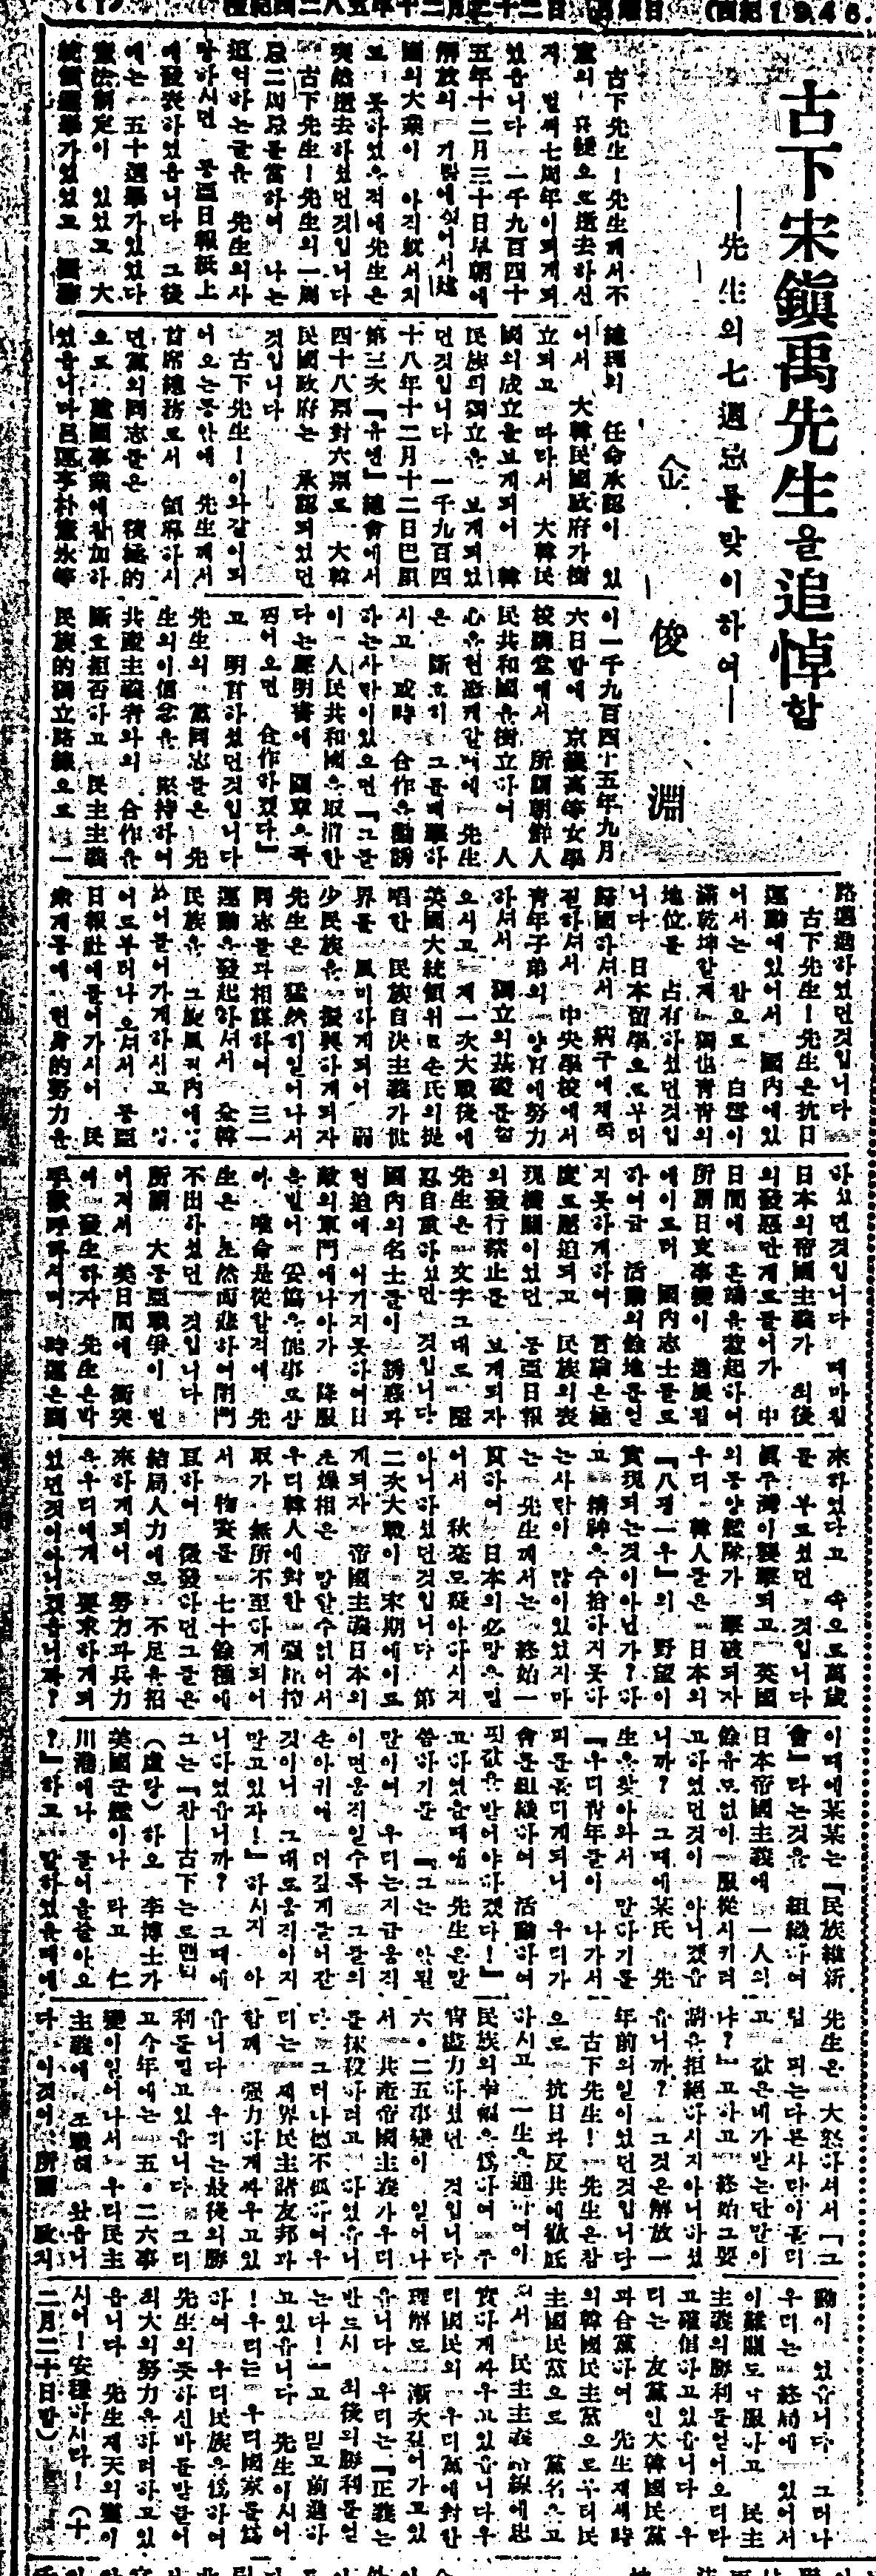 檀紀四二八五年十二月二十二日
月曜日
古下宋鎭禹先生을追悼함
―先生의七週忌를맞이하여―
金俊淵
古下先生!先生께서不
意의 凶變으로逝去하신
지 벌써七周年이되게되
었읍니다 一千九百四十
五年十二月三十日早朝에
解放의 기쁨에싶어서建
國의大業이 아직敍서지
도 못하였을적에先生은
突然逝去하셨던것입니다
古下先生!先生의一周
忌二周忌를當하여 나는
追억하는글을 先生의사
랑하시던 東亞日報紙上
에發表하였읍니다 그後
에는 五十選擧가있었다
憲法制定이 있었고 大
統領選擧가있었고 國務
總理의 任命承認이 있
어서 大韓民國政府가樹
立되고 따라서 大韓民
國의成立을보게되어 韓
民族의獨立을 보게되었
던것입니다 一千九百四
十八年十二月十二日巴里
第三次『유엔』總會에서
四十八票對六票로 大韓
民國政府는 承認되었던
것입니다
古下先生!이와같이되
어오는동안에 先生께서
首席總務로서 領導하시
던黨의同志들은 積極的
으로 建國事業에參加하
였읍니다呂運亨朴憲永等
이一千九百四十五年九月
六日밤에 京畿高等女學
校講堂에서 所謂朝鮮人
民共和國을樹立하여 人
心을현혹케할때에 先生
은 斷호히 그를排擊하
시고 或時 合作을勸誘
하는사람이있으면『그들
이 人民共和國을取消한
다는聲明書에 圖章을찍
어오면 合作하겠다』
고 明言하셨던것입니다
先生의 黨同志들은 先
生의이信念을 堅持하여
共産主義者와의 合作을
斷호拒否하고 民主主義
民族的獨立路線으로 一
路邁進하였던것입니다
古下先生!先生은抗日
運動에있어서 國內에있
어서는 참으로 白雪이
滿乾坤할제 獨也靑靑의
地位를 占有하셨던것입
니다 日本留學으로부터
歸國하셔서 病구에채찍
질하셔서 中央學校에서
靑年子弟의 양육에努力
하셔서 獨立의基礎를닦
으시고 제一次大戰後에
美國大統領위르손氏의提
唱한 民族自決主義가世
界를 風미하게되어 弱
少民族을 振興하게되자
先生은 猛然히일어나서
同志들과相謀하여 三一
運動을發起하셔서 全韓
民族을 그旋風권內에
어들어가게하시고
어로부터나 오셔서 東亞
日報社에들어가시어 民
衆계몽에 헌身的努力을
하셨던것입니다 때마침
日本의帝國主義가 최後
의發惡단계로들어가 中
日間에 혼端을惹起하여
所謂日支事變이 進展됨
에이르러 國內志士들로
하여금 活動의餘地를얻
지못하게하여 言論은極
度로壓迫되고 民族의表
現機關이었던 東亞日報
의發行禁止를 보게되자
先生은 文字그대로 隱
忍自重하셨던 것입니다
國內의名士들이 誘惑과
협迫에 이기지못하여日
敵의軍門에나아가 降服
을빌어 妥協을能事로삼
아 唯命是從할적에 先
生은 초然而悲하여閉門
不出하셨던 것입니다
所謂 大東亞戰爭이 벌
어져서 英日間에 衝突
이 發生하자 先生은박
手歡呼하시며 時運은到
來하였다고 속으로萬歲
를 부르셨던 것입니다
眞주灣이襲擊되고 英國
의동양艦隊가 擊破되자
우리 韓人들은 日本의
『八굉一우』의 野望이
實現되는것이아닌가?하
고 精神을수拾하지못하
는사람이 많이있었지마
는 先生께서는 終始一
貫하여 日本의必망을믿
어서 秋毫도疑아하시지
아니하셨던것입니다 第
二次大戰이 末期에이르
게되자 帝國主義日本의
초燥相은 말할수없어서
우리韓人에對한 强制착
取가 無所不至하게되어
서 物資를 七十餘種에
亘하여 徵發하던그들은
結局人力에도 不足을招
來하게되어 努力과兵力
을우리에게 要求하게되
었던것이아니겠읍니까?
이때에某某는『民族維新
會』라는것을 組織하여
日本帝國主義에 一人의
餘유도없이 服從시키려
고하였던것이 아니겠읍
니까? 그때에某氏 先
生을찾아와서 말하기를
『우리靑年들이 나가서
피를흘리게되니 우리가
會를組織하여 活動하여
핏값을받어야하겠다!』
고하였을때에 先生은말
씀하기를 『그는 안될
말이여 우리는지금움직
이면움직일수록 그들의
손아귀에 더깊게들어간
것이니 그대로움직이지
말고있자!』하시지 아
니하였읍니까? 그때에
그는『참―古下는로맨틱
(虛탕)하오 李博士가
美國군艦이나 타고 仁
川港에나 들어올줄아오
?』하고 말하였을때에
先生은 大怒하셔서『그
럼 피는다른사람이흘리
고 값은네가받는단말이
냐?』고하고 終始그要
請을拒絶하시지아니하셨
읍니까? 그것은解放一
年前의일이었던것입니다
古下先生! 先生은참
으로 抗日과反共에徹底
하시고 一生을通하여이
民族의幸福을爲하여 주
宵盡力하셨던 것입니다
六·二五事變이 일어나
서 共産帝國主義가우리
를抹殺하려고 하였읍니
다 그러나德不孤하여우
리는 세界民主諸友邦과
함께 强力하게싸우고있
읍니다 우리는最後의勝
利를믿고있읍니다 그리
고今年에는 五·二六事
變이일어나서 우리民主
主義에 도戰해 왔읍니
다 이것이 所謂 政治
動이 었읍니다 그러나
우리는 終局에 있어서
이難關도克服하고 民主
主義의勝利를얻어오리다
고確信하고있읍니다 우
리는 友黨인大韓國民黨
과合黨하여 先生제세時
의韓國民主黨으로부터民
主國民黨으로 黨名을고
쳐서 民主主義路線에忠
實하게싸우고있읍니다우
리國民의 우리黨에對한
理解도 漸次깊어가고있
읍니다 우리는『正義는
반드시 최後의勝利를얻
는다!』고 믿고前進하
고있읍니다 先生이시어
!우리는 우리國家를爲
하여 우리民族을爲하여
先生의못하신바를받들어
최大의努力을하려하고있
읍니다 先生재天의靈이
시어!安穩하시다!(十
二月二十日밤)